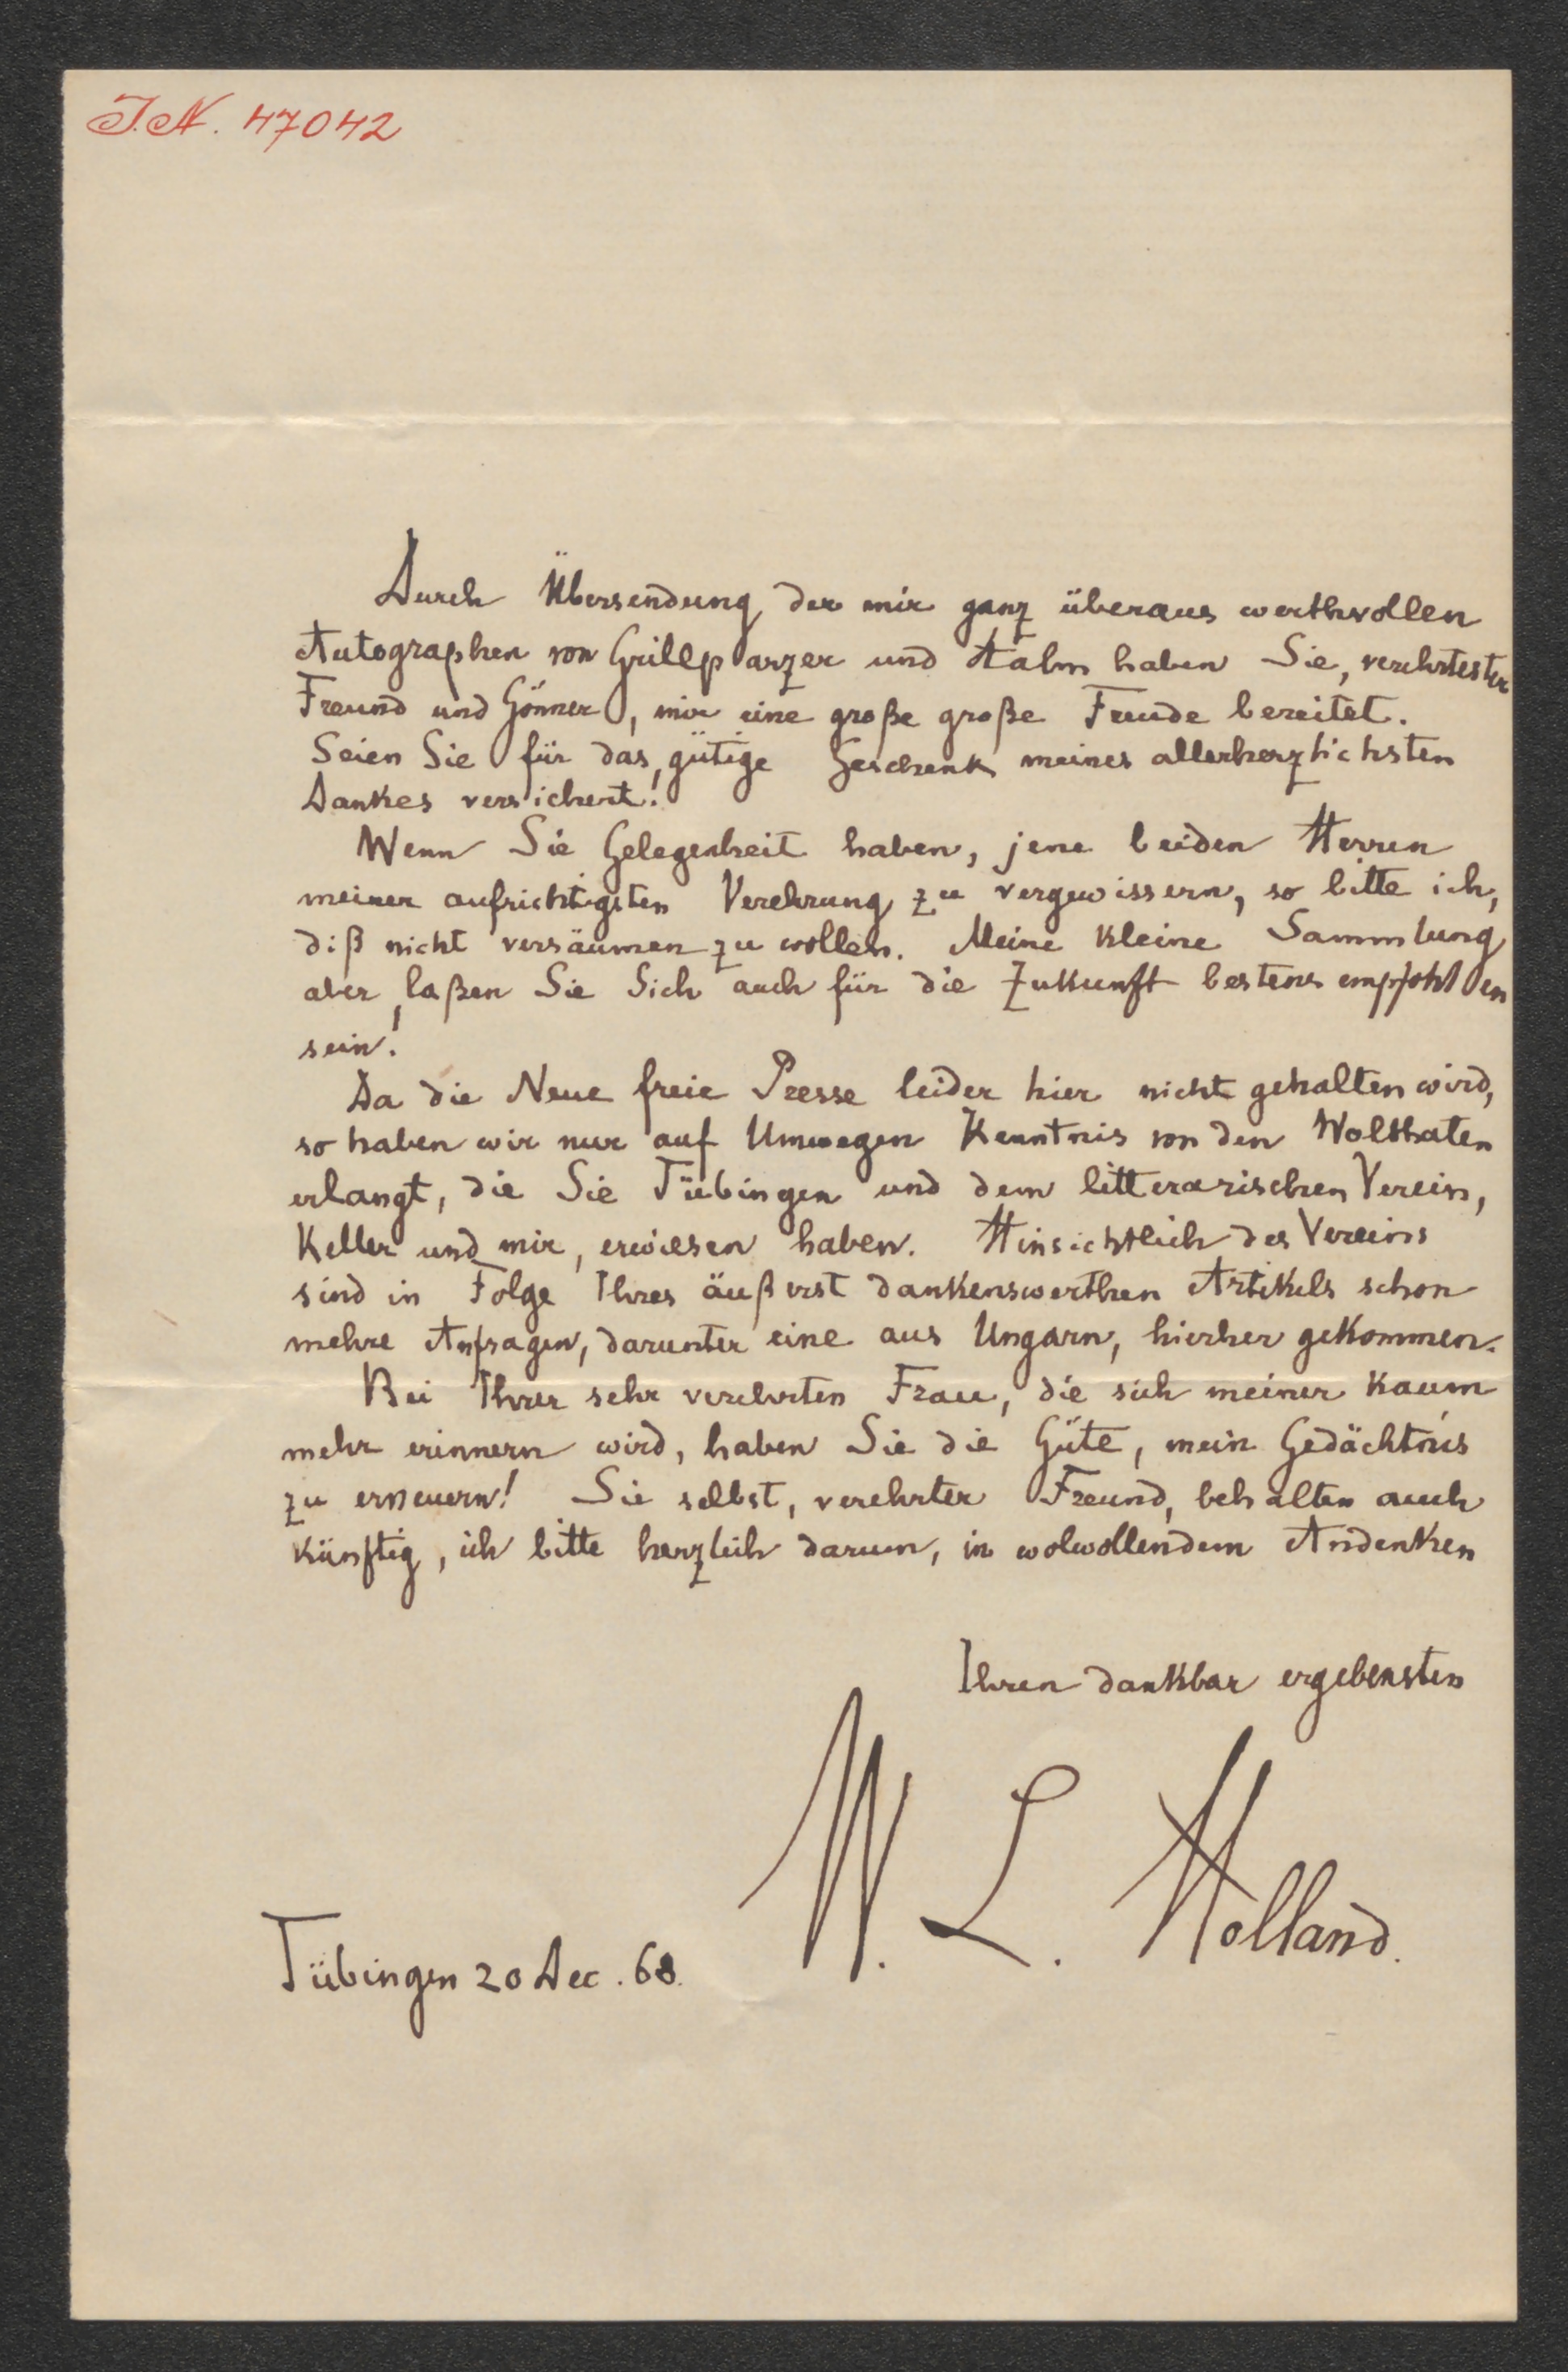 J.N. 47042
Durch Übersendung der mir ganz überaus werthvollen
Autographen von Grillparzer und Halm haben Sie, verehrtester
Freund und Gönner, mir eine große große Freude bereitet.
Seien Sie für das gütige Geschenk meines allerherzlichsten
Dankes versichert!
Wenn Sie Gelegenheit haben, jene beiden Herren
meiner aufrichtigsten Verehrung zu vergewissern, so bitte ich,
diß nicht versäumen zu wollen. Meine kleine Sammlung
aber laßen Sie Sich auch für die Zukunft bestens empfohlen
sein!
Da die Neue freie Presse leider hier nicht gehalten wird,
so haben wir nur auf Umwegen Kenntnis von den Wolthaten
erlangt, die Sie Tübingen und dem litterarischen Verein,
Keller und mir, erwiesen haben. Hinsichtlich des Vereins
sind in Folge Ihres äußerst dankenswerthen Artikels schon
mehre Anfragen, darunter eine aus Ungarn, hierher gekommen.
Bei Ihrer sehr verehrten Frau, die sich meiner kaum
mehr erinnern wird, haben Sie die Güte, mein Gedächtnis
zu erneuern! Sie selbst, verehrter Freund, behalten auch
künftig, ich bitte herzlich darum, in wolwollendem Andenken
Ihren dankbar ergebensten
W. L. Holland.
Tübingen 20 Dec. 68.